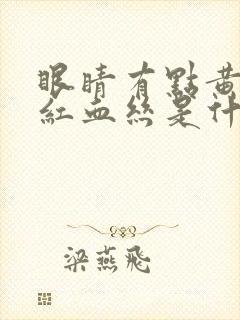 眼睛有點黃
紅血絲是什
梁燕飛